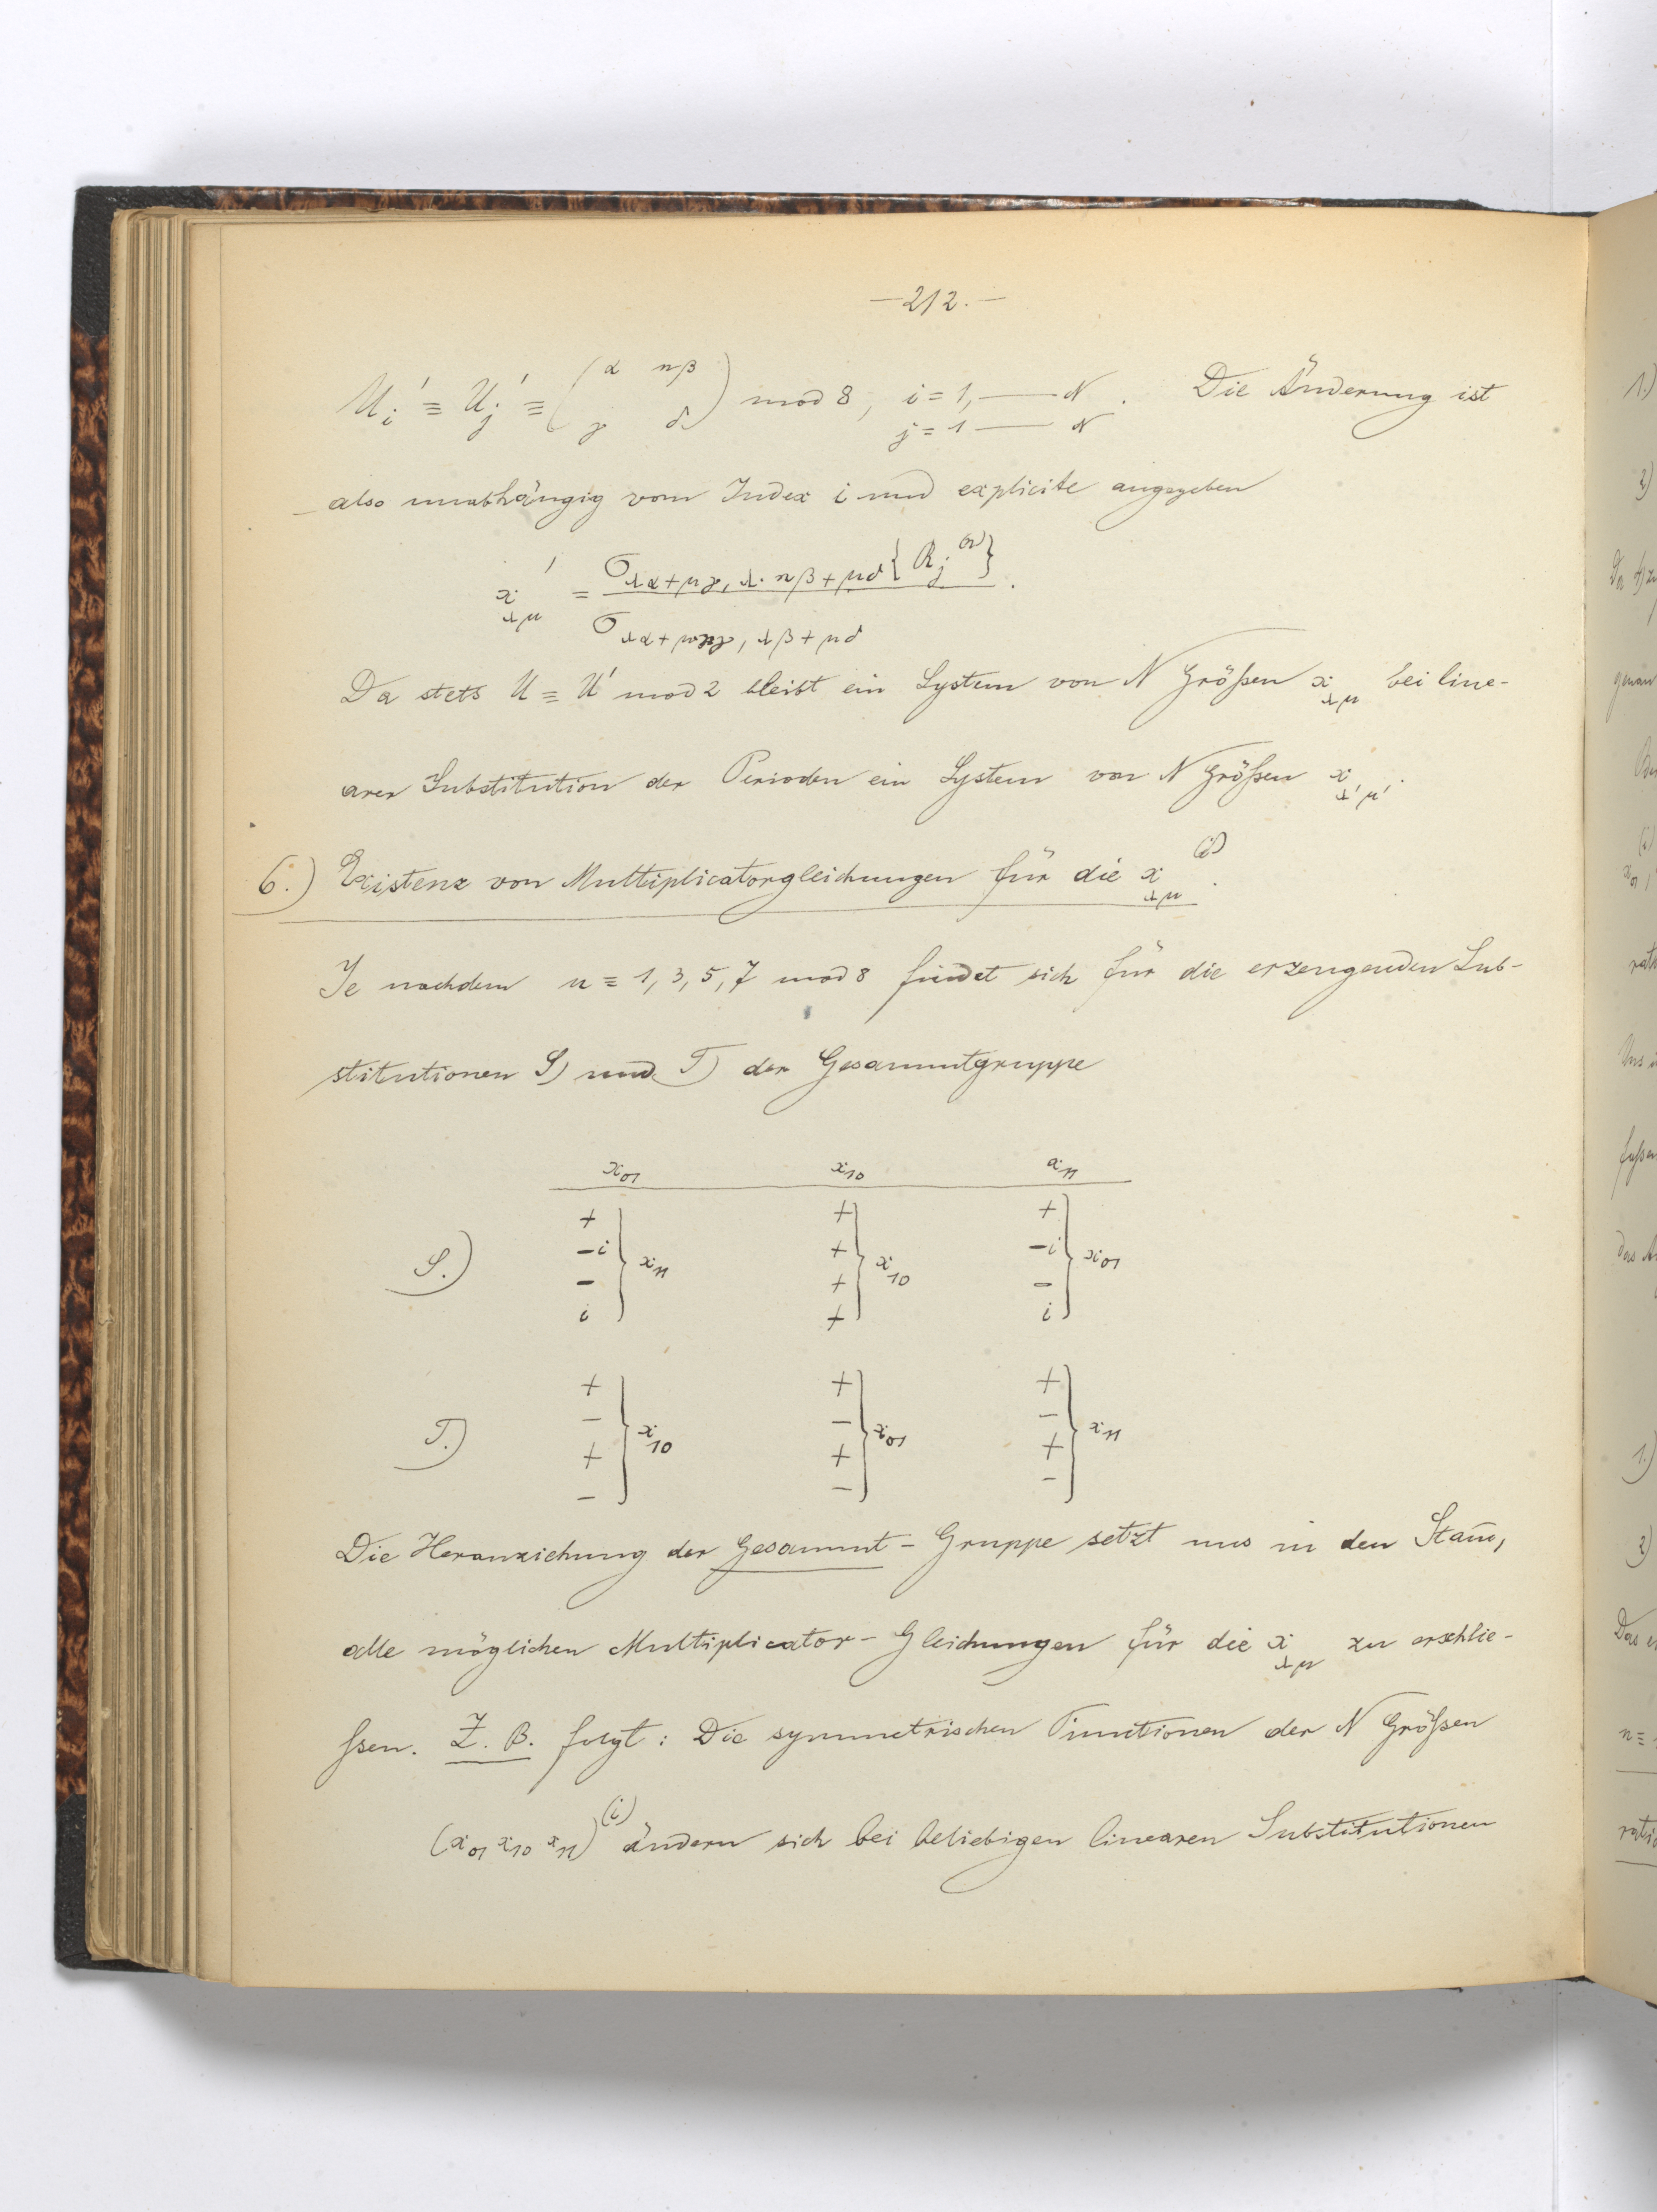 —212.—
U_i' ≡ U_j' ≡ (α nβ
γ δ) mod 8, i = 1, —— N. Die Änderung ist
j = 1 —— N
also unabhängig vom Index i und explicite angegeben
x'_{λμ} = σ_{λα+μγ, λ·nβ+μδ}{R_j^{(n)}} .
σ_{λα+μγ, λβ+μδ}
Da stets U ≡ U' mod 2 bleibt ein System von N Größen x_{λμ} bei line-
arer Substitution der Perioden ein System von N Größen x_{λ'μ'}.
6.) Existenz von Multiplicatorgleichungen für die x_{λμ}^{(i)}.
Je nachdem n ≡ 1, 3, 5, 7 mod 8 findet sich für die erzeugenden Sub-
stitutionen S) und T) der Gesammtgruppe
x_{01} x_{10} x_{11}
+ + +
−i + −i
S.) } x_{11} } x_{10} } x_{01}
− + −
i + i
+ + +
− − −
T.) } x_{10} } x_{01} } x_{11}
+ + +
− − −
Die Heranziehung der Gesammt-Gruppe setzt uns in den Stand,
alle möglichen Multiplicator-Gleichungen für die x_{λμ} zu erschlie-
ssen. Z. B. folgt: Die symmetrischen Functionen der N Größen
(x_{01} x_{10} x_{11})^{(i)} ändern sich bei beliebigen linearen Substitutionen